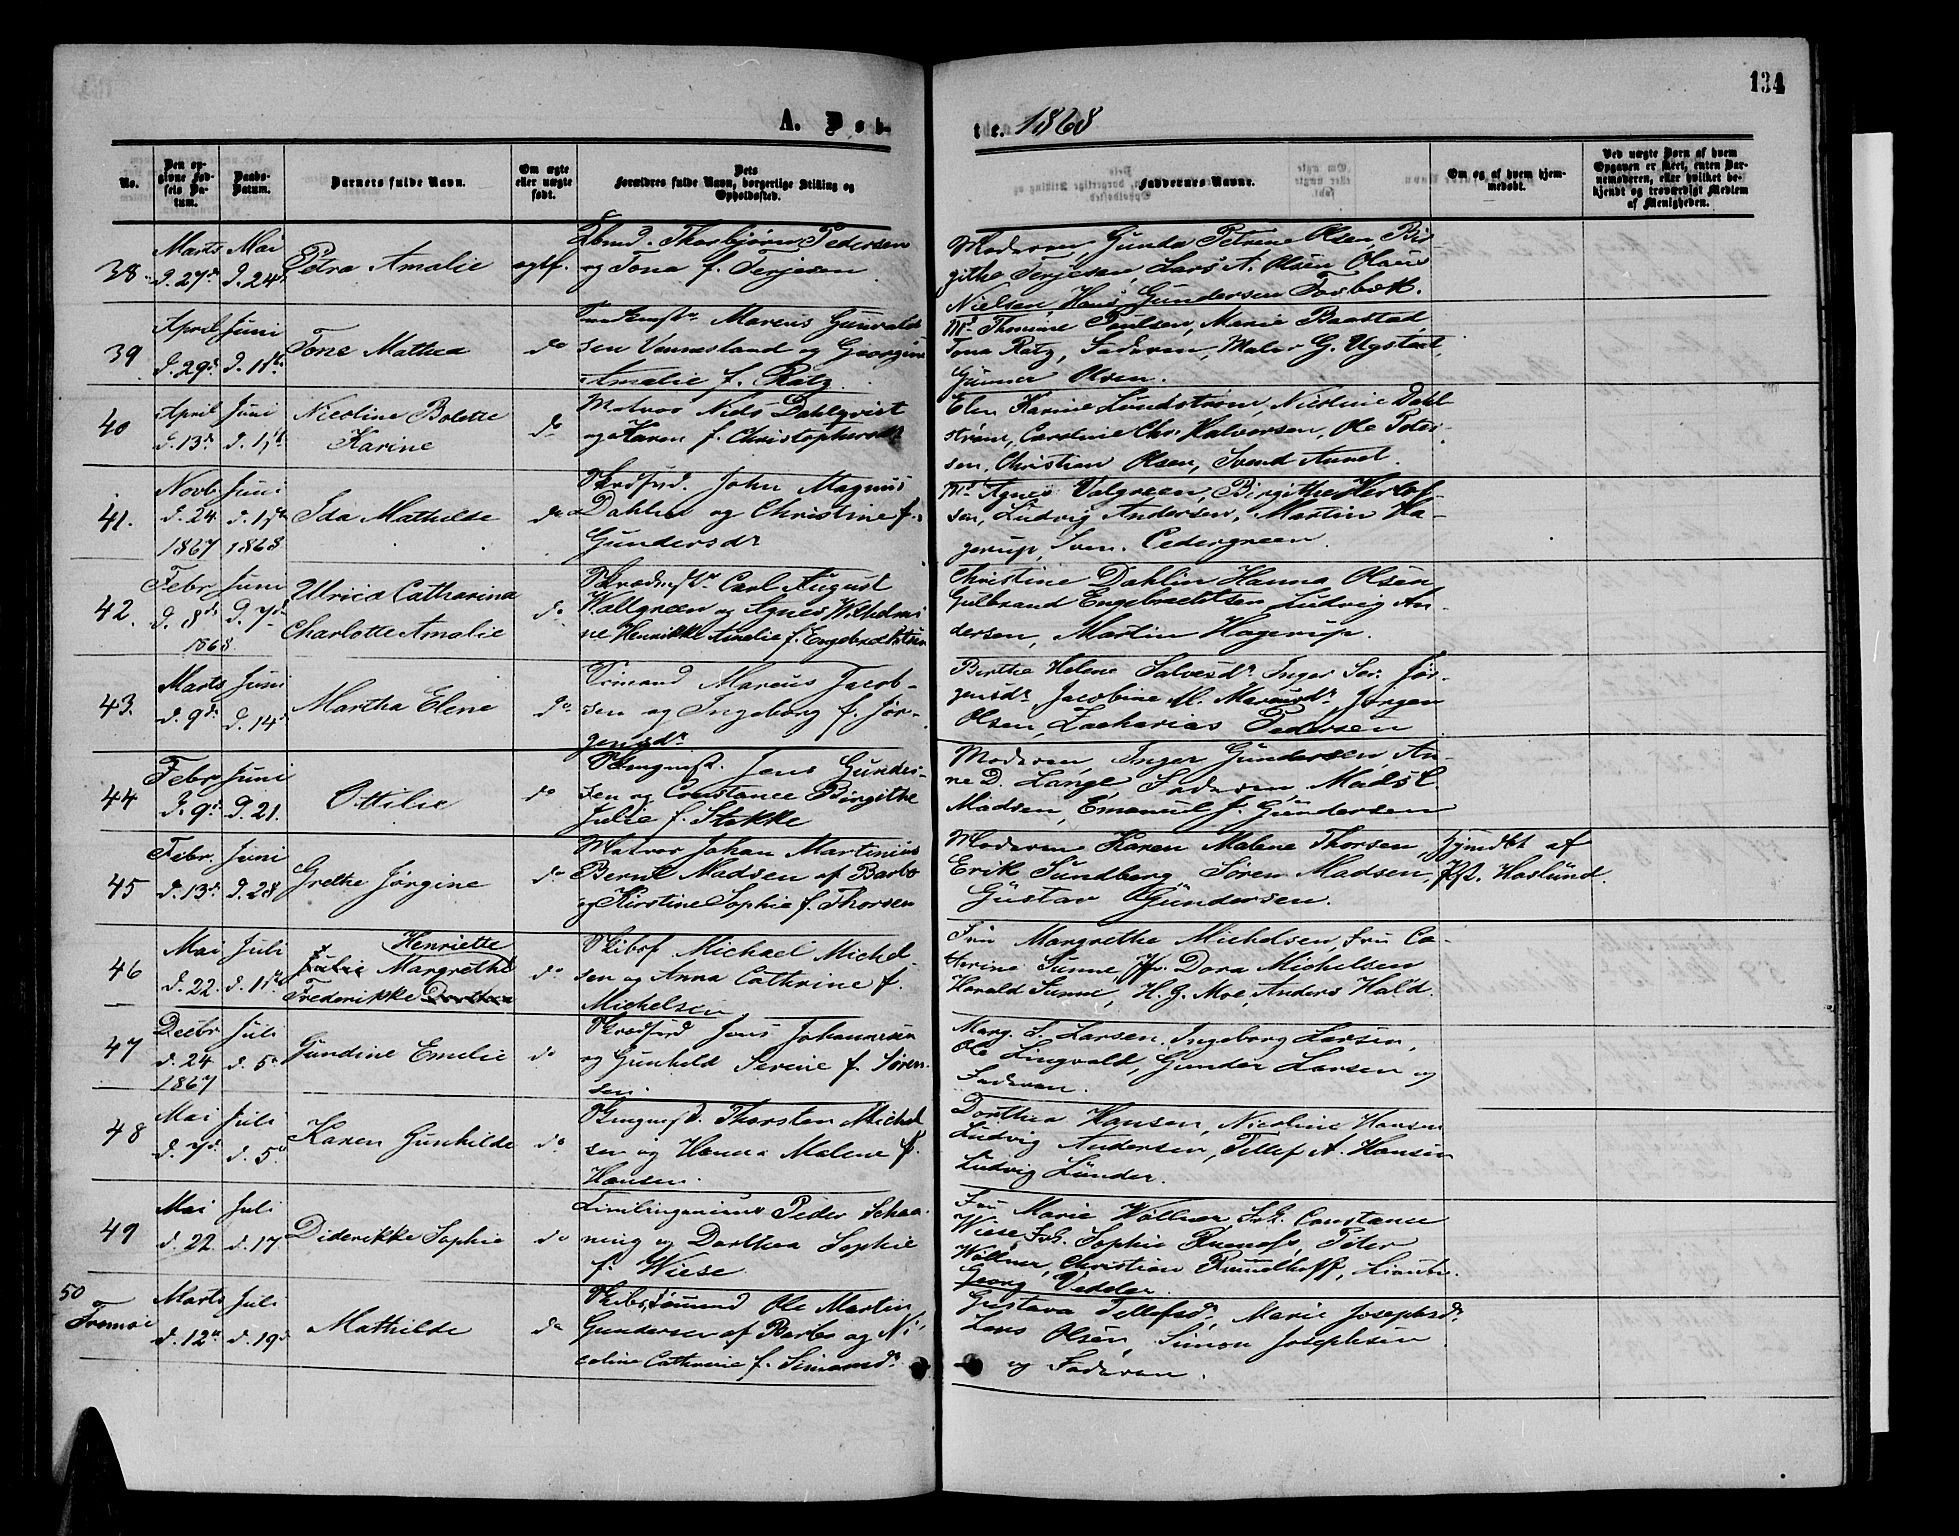 134
A. Døb-
te. 1868
No.
Den op-
givne Fød-
sels Da-
tum.
Daabs-
Datum.
Barnets fulde Navn.
Om ægte
eller uægte
født.
Dets
Forældres fulde Navn, borgerlige Stilling og
Opholdssted.
Faddernes Navne.
Om og af hvem hjem-
medøbt.
Ved uægte Børn af hvem
Opgaven er skeet, enten Bar-
nemoderen, eller hvilket be-
kjendt og troværdigt Medlem
af Menigheden.
38
Marts
d. 27de
Mai
d. 24de
Petra Amalie
ægtf.
Thorbjørn Pedersen
og Tona f. Terjesen
Moderen, Gunda Petrine Olsen, Bir
githe Terjesen, Lars A. Olsen, Olaus
Nielsen, Hans Gundersen Torbæk.
39
April
d. 29de
Juni
d. 1ste
Tone Mathea
do
Marcus Gunvald-
sen Vennesland og Georgine
Amalie f. Ratz
Md. Thomine Paulsen, Marie Baastad,
Tona Ratz, Faderen, Maler G. Ugstad,
Gunner Olsen.
40
April
d. 13de
Juni
d. 1ste
Nicoline Bolette
Karine
do
Matros Niels Dahlqvist
og Karen f. Christophersdr
Elen Karine Lundstrøm, Nicoline Dahl-
strøm, Caroline Chr. Halvorsen, Ole Peter-
sen, Christian Olsen, Svend Aanet.
41.
Novb.
d. 24
1867
Juni
d. 1ste
1868
Ida Mathilde
do
Skrædsvd. John Magnus
Dahlin og Christine f.
Gundersdr
Md. Agnes Valgreen, Birgithe Herlof-
sen, Ludvig Andersen, Martin Ha-
gerup, Sven Cedergreen.
42.
Febr
d. 8de
1868
Juni
d. 7de
Ulrica Catharina
Charlotte Amalie
do
Skrædmstr Carl August
Wallgreen og Agnes Wilhelmi
ne Henrikke Amalie f. Engebrechtsen
Christine Dahlin, Hanna Olsen
Gulbrand Engebrechtsen, Ludvig An-
dersen, Martin Hagerup.
43.
Marts
d. 9de
Juni
d. 14de
Martha Elene
do
Marcus Jacob-
sen og Ingeborg f. Jør-
gensdr
Berthe Helene Salvesdr, Inger Sør. Jør-
gensdr, Jacobine M. Marcusdr, Jørgen
Olsen, Zacharias Pedersen
44
Febr
d. 9de
Juni
d. 21.
Ottilie
do
Jens Gunder-
sen og Constance Birgithe
Julie f. Stokke
Moderen, Inger Gundersen, An-
ne D. Lange, Faderen, Mads C.
Madsen, Emanuel J. Gundersen
45
Febr.
d. 13de
Juni
d. 28
Grethe Jørgine
do
Matros Johan Martinius
Bernt Madsen af Barbo
og Kirstine Sophie f. Thorsen
Moderen, Karen Malene Thorsen,
Erik Sundberg, Søren Madsen,
Gustav Gundersen.
hjmdbt af
Pst. Haslund.
46
Mai
d. 22.
Juli
d. 1ste
Henriette
Julie Margrethe
Frederikke Dorthea
do
Skibsf Michael Michel-
sen og Anna Cathrine f.
Michelsen
Fru Margrethe Michelsen, Fru Ca-
therine Sunne, Jfr. Dora Michelsen
Harald Sunne, H. G. Moe, Anders Hald.
47
Decbr
d. 24
1867
Juli
d. 5te
Gundine Emelie
do
Jens Johannesen
og Gunhild Serine f. Søren-
sen.
Marg. S. Larsen, Ingeborg Larsen,
Ole Lingvald, Gunder Larsen og
Faderen.
48
Mai
d. 7de
Juli
d. 5te
Karen Gunhilde
do
Thorsten Michel
sen og Hanna Malene f.
Hansen.
Dorthea Hansen, Nicoline Hansen
Ludvig Andersen, Tellef A. Hansen
Ludvig Lunder.
49
Mai
d. 22.
Juli
d. 17
Diderikke Sophie
do
Civilingenieur Peder Schaa-
ning og Dorthea Sophie
f. Wiese
Fru Marie Wøllner, Frk. Constance
Wiese, Frk. Sophie, Peter
Wøllner, Christian Rundhoff,
Georg Vedeler.
50
Tromøe
Marts
d. 12te
Juli
d. 19de
Mathilde
do
Skibstømmd Ole Martin
Gundersen af Barbo og Ni-
coline Cathrine f. Simonsdr
Gustava Tellefsdr, Marie Josephsdr.
Lars Olsen, Simon Josephsen
og Faderen.